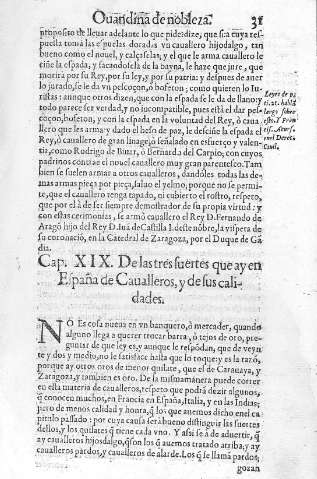 Ouandiña de nobleza. 31
proposito de lleuar adelante lo que pide dize, que sea cuya res-
puesta toma las espuelas doradas vn cauallero hijodalgo, tan
bueno como el nouel, y calçaselas, y el que le arma cauallero le
ciñe la espada, y sacandosela de la bayna, le haze que jure, que
morirà por su Rey, por su ley, y por su patria: y despues de auer
lo jurado, se le da vn pescoçon, ò bofeton; como quieren lo Iu-
ristas: aunque otros dizen, que con la espada se le da de llano: y
todo parece ser verdad, y no incompatible, pues està el dar pes-
coçon, bofeton, y con la espada en la voluntad del Rey, ò caua
llero que les arma: y dado el beso de paz, le desciñe la espada el
Rey, ò cauallero de gran linage, ò señalado en esfuerço y valen-
tia, como Rodrigo de Biuar, ò Bernardo del Carpio, con cuyos
padrinos contrae el nouel cauallero muy gran parentesco. Tam
bien se suelen armar a otros caualleros, dandoles todas las de-
mas armas pieça por pieça, saluo el yelmo, porque no se permi-
te, que el cauallero tenga tapado, ni cubierto el rostro, respeto,
que por el à de ser siempre demostrador de su propia virtud: y
con estas cerimonias, se armò cauallero el Rey D. Fernando de
Aragõ hijo del Rey D. Iuã de Castilla I. deste nõbre, la vispera de
su coronaciõ, en la Catedral de Zaragoza, por el Duque de Gã
dia.
Leyes de pa
ti. 21. habla
largo sobre
Cap. XIX. De las tres suertes que ay en
España de Caualleros, y de sus cali-
dades.
NO Es cosa nueua en vn banquero, ò mercader, quando
alguno llega a querer trocar barra, ò tejos de oro, pre-
guntar de que ley es, y aunque le respõdan, que de veyn
te y dos y medio, no le satisfaze hasta que lo toque: y es la razõ,
porque ay otros oros de menor quilate, que el de Carauaya, y
Zaragoza, y tambien es oro. De la misma manera puede correr
en esta materia de caualleros, respeto que podrà dezir algunos,
q̃ conocen muchos, en Francia en España, Italia, y en las Indias;
pero de menos calidad y honra, q̃ los que auemos dicho en el ca
pitulo passado: por cuya causa serà bueno distinguir las suertes
dellos, y los quilates q̃ tiene cada vno. Y assi se à de aduertir, q̃
ay caualleros hijosdalgo, q̃ son los q̃ auemos tratado arriba, y ay
caualleros pardos, y caualleros de alarde. Los q̃ se llamã pardos,
gozan